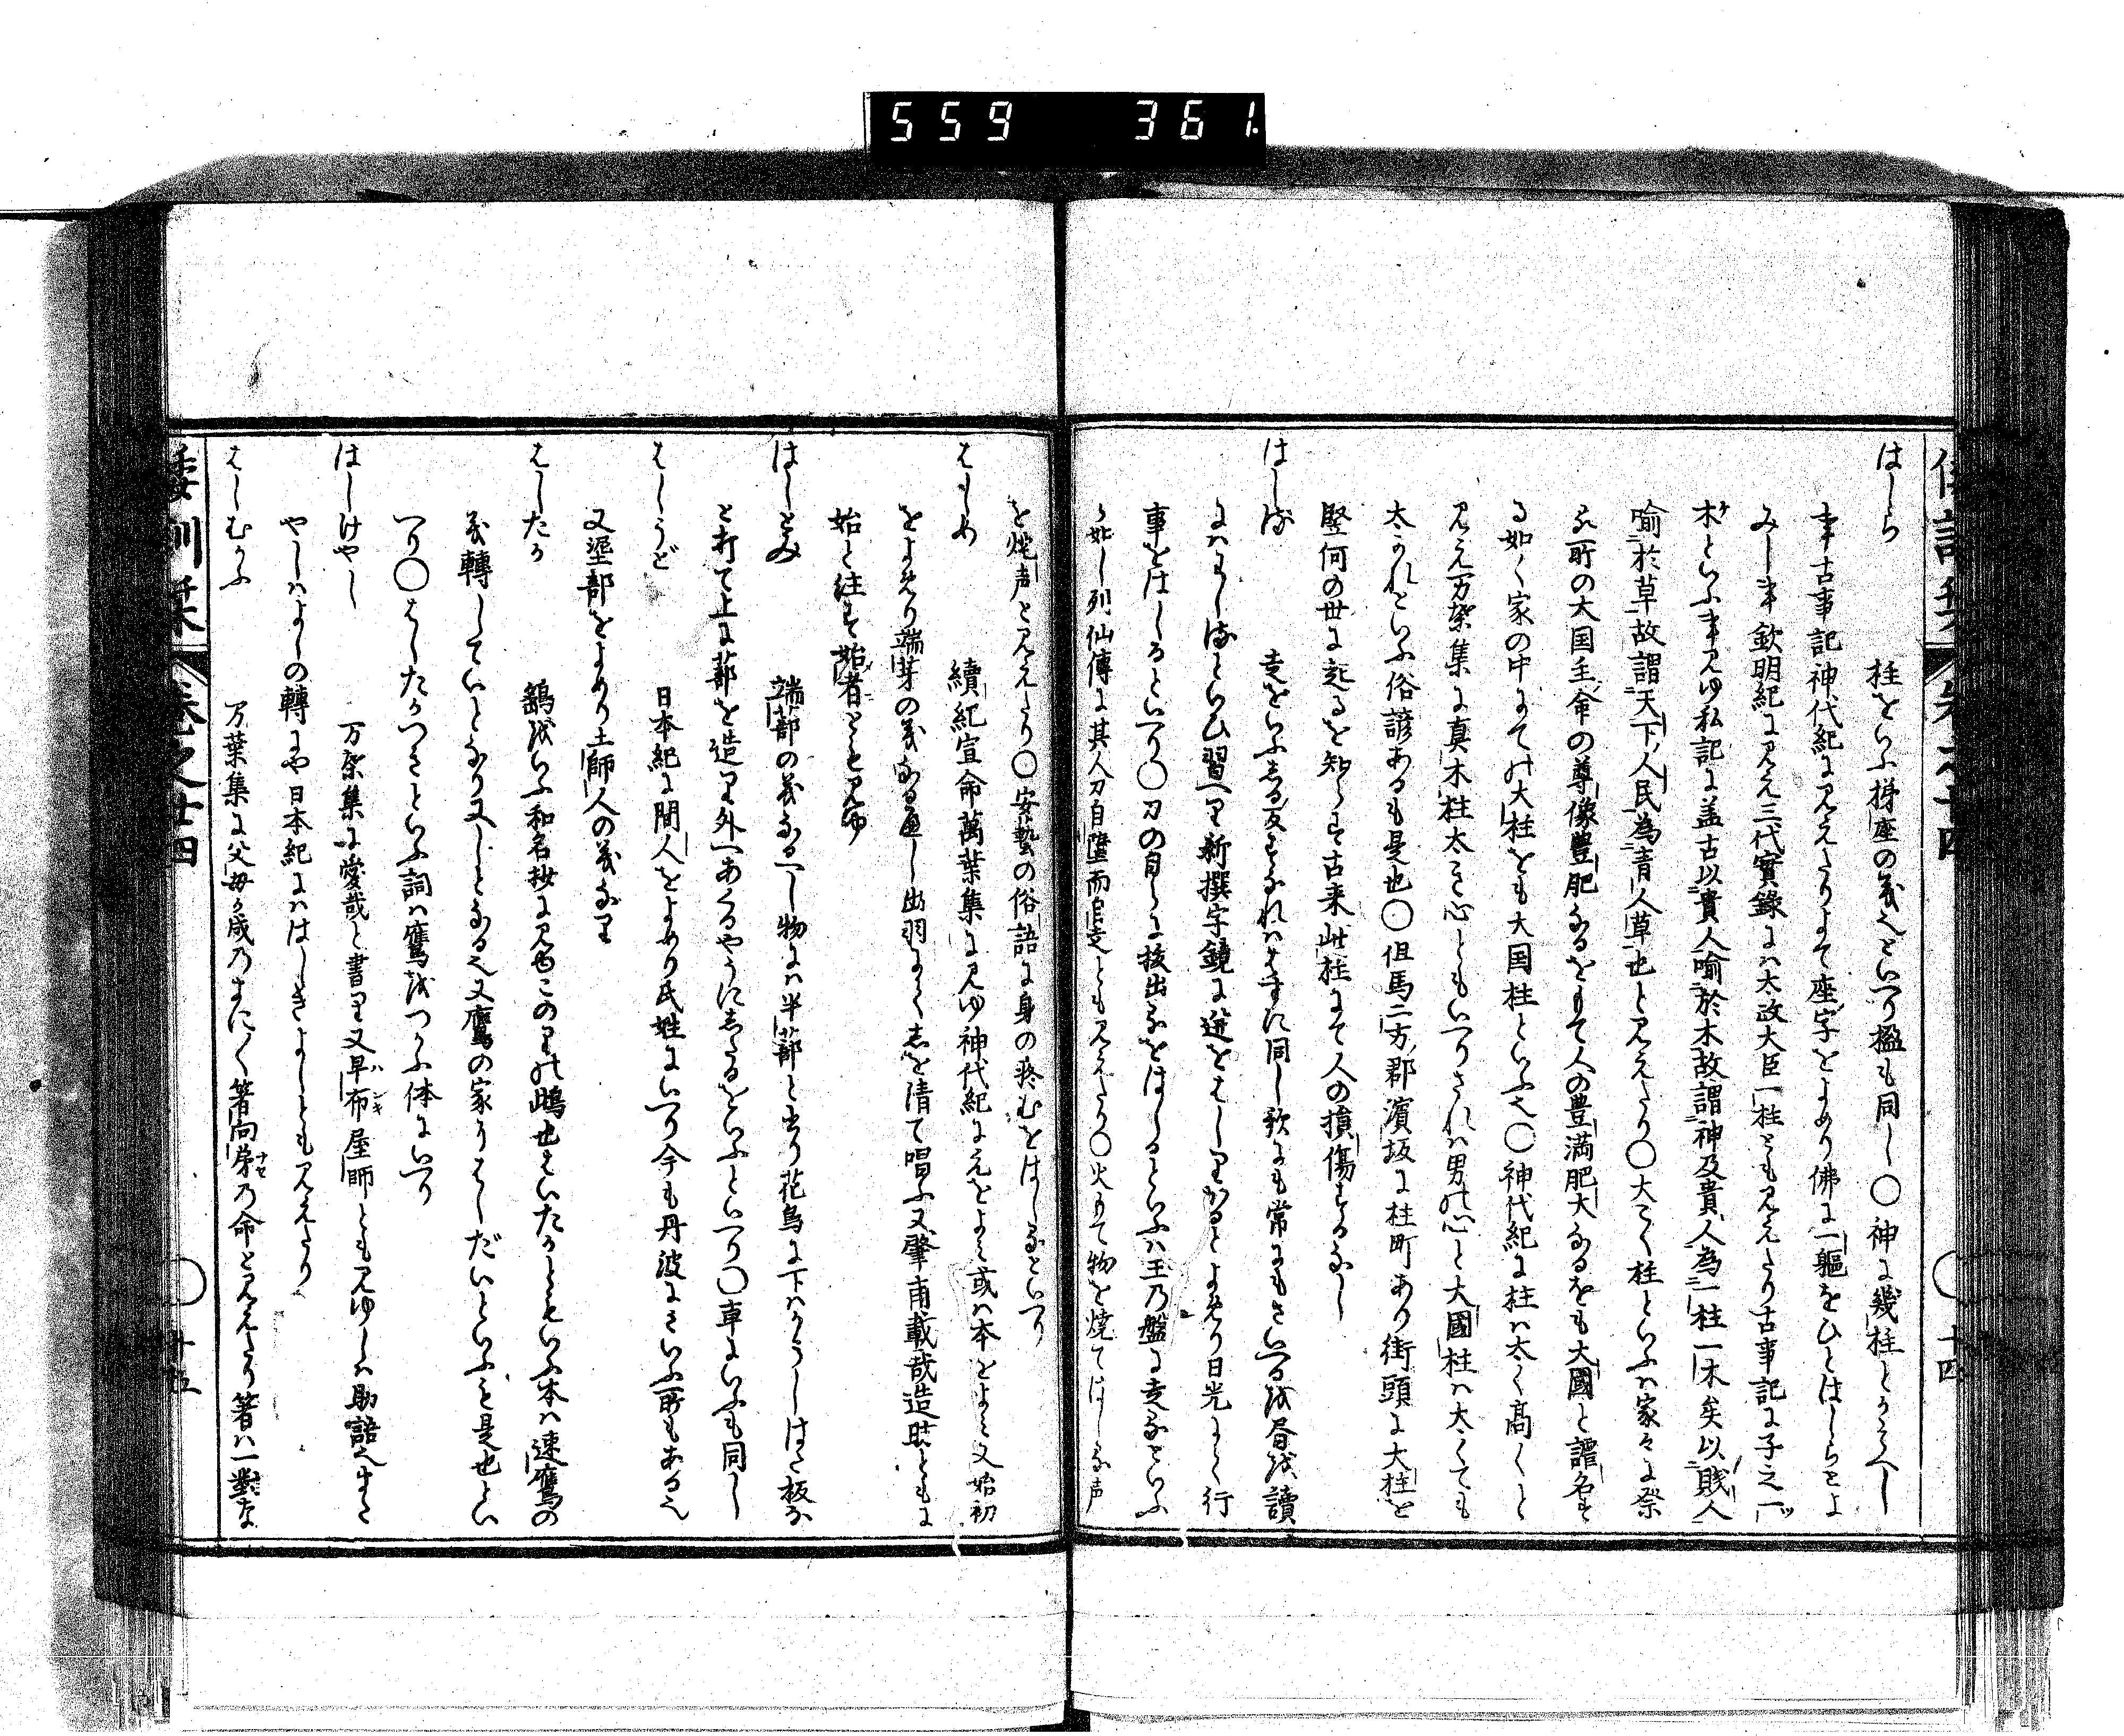 559 361
はしら 柱をいふ梯座の義也といへり楹も同し〇神に幾柱とかそへし
事古事記神代紀に見えたりよて座字をよめり佛に一軀をひとはしらとよ
みし事欽明紀に見え三代實錄には太政大臣一柱とも見えたり古事記に子之一
木といふ事見ゆ私記に蓋古以貴人喻於木故謂神及貴人為一柱一木矣以賤人
喻於草故謂天下人民為青人草也と見えたり〇大こく柱といふは家々に祭
る所の大国主命の尊像豊肥なるをもて人の豊満肥大なるをも大國と諢名す
る如く家の中にての大柱をも大国柱といふ也〇神代紀に柱は太く高くと
見え万葉集に真木柱太き心ともいへりされは男の心と大國柱は太くても
太かれといふ俗諺あるも是也〇但馬二方郡濱坂に柱町あり街頭に大柱を
竪何の世に起るを知らす古来此柱にて人の損傷するなし
はしる 走をいふ
にはわしるといひ習へり新撰字鏡に迸をはしりかるとよめり日光にて行
事をはしるといへり〇刀の自らに抜出るをはしるといふは玉乃盤に走るといふ
か如し列仙傳に其人刀自墮而自走とも見えたり〇火にて物を焼てはしる声
を𤆼声と見えたり〇安藝の俗語に身の疼むをはしるといへり
はしめ 續紀宣命萬葉集に見ゆ神代紀に元をよみ或は本をよみ又始初
をよめり端芽の義なるへし出羽にてしを清て唱ふ又肇甫載哉造昉ともに
始と注す始者ともみゆ
はしとみ 端蔀の義なるへし物には半蔀と書り花鳥に下はかうしはた板な
と打て上に蔀を造り外へあくるやうにしたるをいふといへり〇車にいふも同し
はしうど 日本紀に間人をよめり氏姓にいへり今も丹波にさいふ所もある也
又埿部をよめり土師人の義なり
はしたか 鷂をいふ和名抄に見ゆこのりの鴟也はいたかともいふ本は速鷹の
義轉してはいとなり又しとなる也又鷹の家にはしだいといふも是也とい
へり〇はしたかつきといふ詞は鷹をつかふ体にいへり
はしけやし 万葉集に愛哉と書り又早布屋師とも見ゆしは助語也また
やしはよしの轉にや日本紀にははしきよしとも見えたり
はしむかふ 万葉集に父母か成乃まに〱箸向弟乃命と見えたり箸は一對な
倭訓栞 巻之廿四 十五